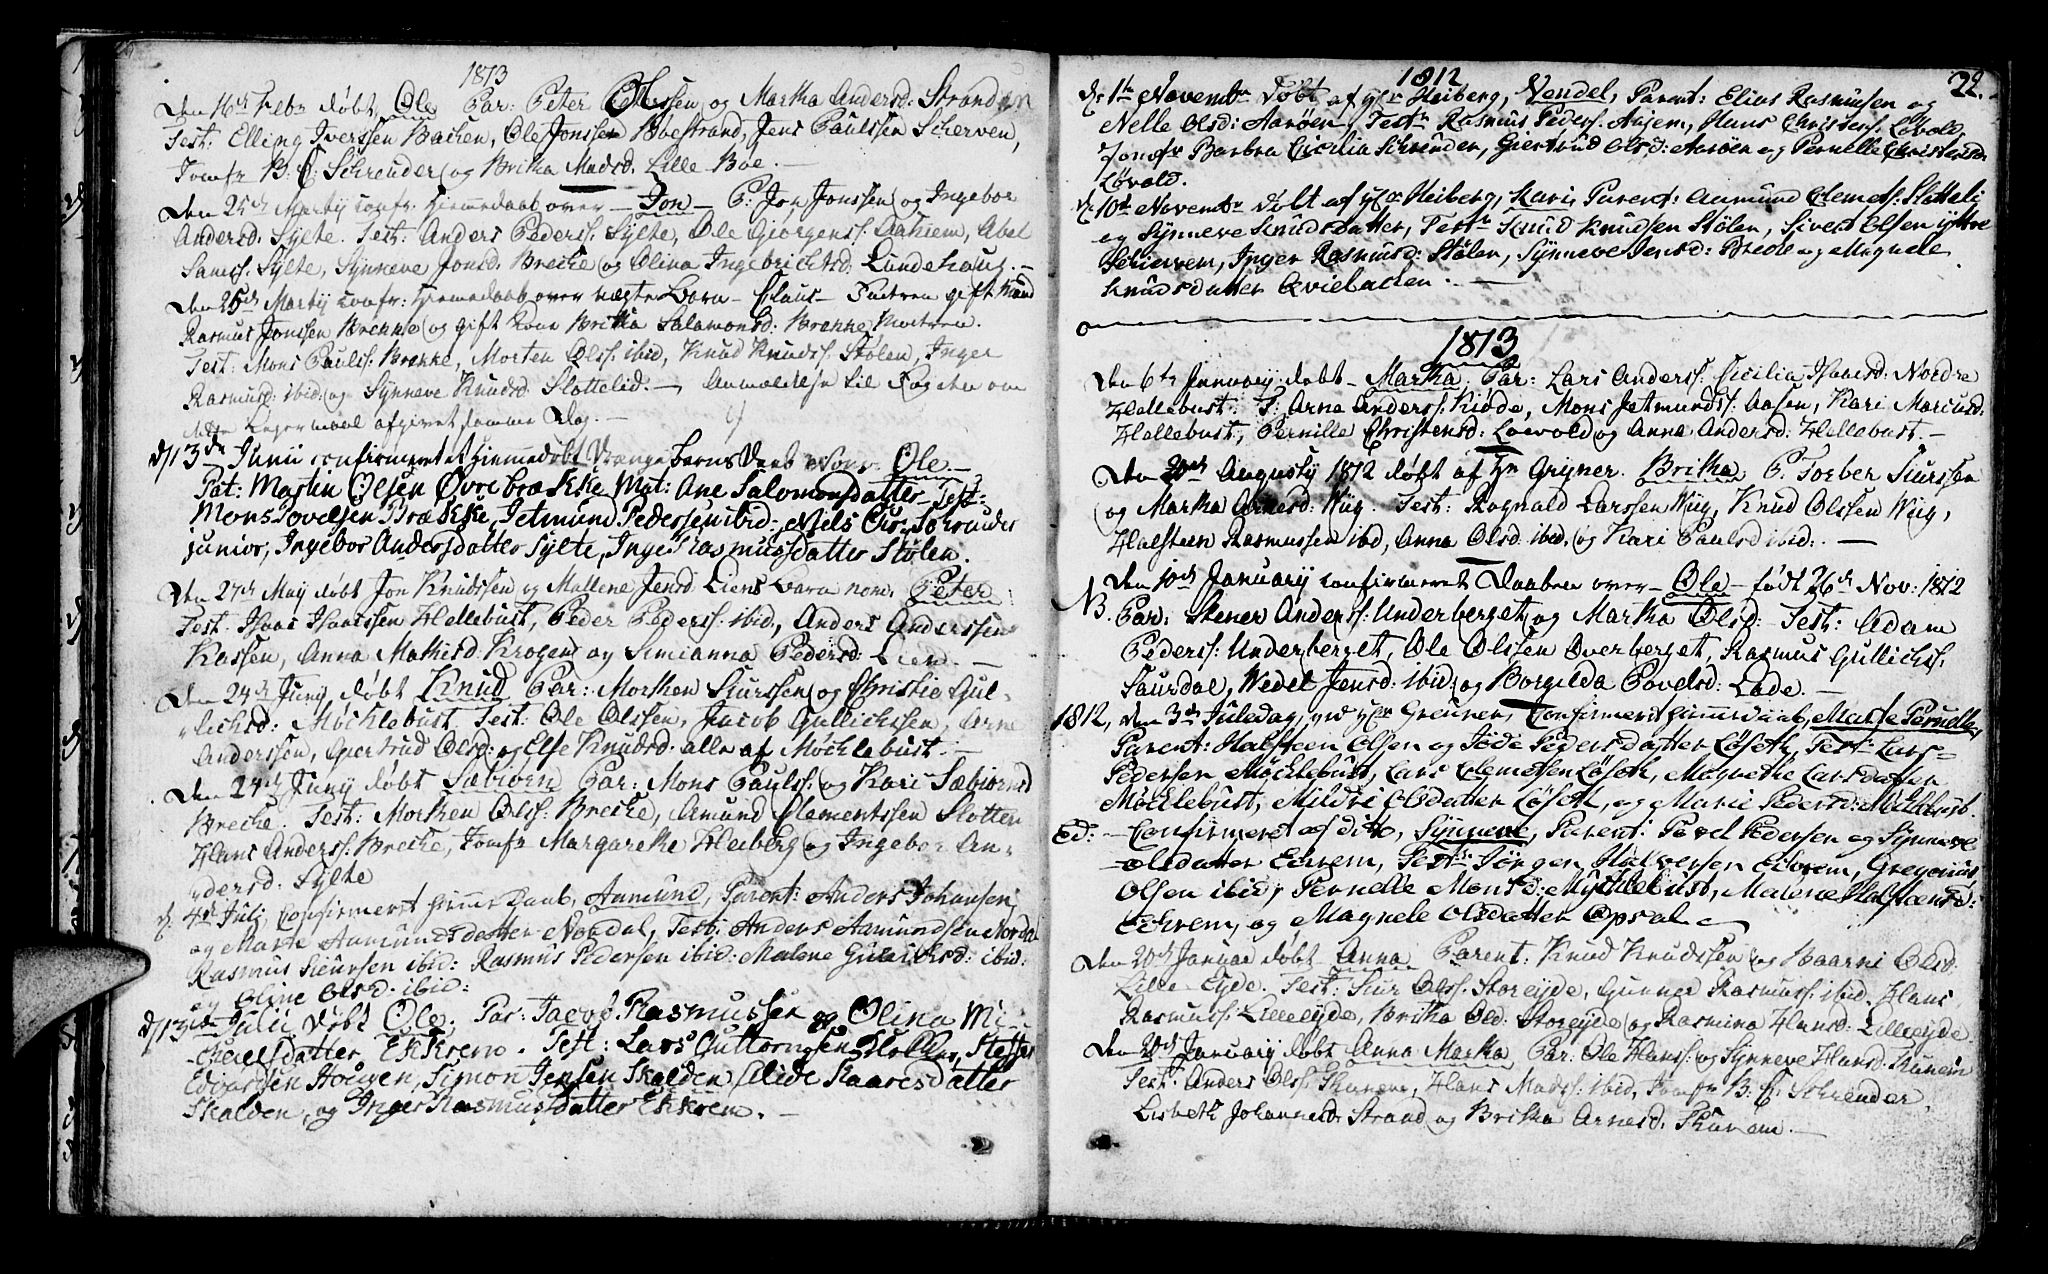 1813
Den 16de Febr døbt Ole Par: Peter Olssen og Martha Andersd: Stranden
Test: Elling Iverssen Bachen, Ole Jonssen Boestrand, Jens Paulssen Scherven,
Jomfr B: C: Schreuder og Britha Madsd. Lille Boe.
Den 25de Martij confr. Hiemedaab over – Jon – P: Jon Jonssen og Ingebor
Andersd: Sylte. Test: Anders Pederss: Sylte, Ole Giørgenss: Aahiem, Abel
Samss. Sylte, Synneve Jonsd. Brecke og Olina Ingebrichtsd: Lundehaug. –
Den 25de Martij confr: Hiemedaab over uægte Barn – Claus – Fadren gift Mand
Rasmus Jonssen Brekke og gift Kone Britha Salamonsd: Brekke Modren.
Test: Mons Paulss: Brekke, Morten Olss: ibid, Knud Knudss. Stølen, Inger
Rasmusd: ibid: og Synneve Knudsd. Slottelid. – Anmeldelse til Fogden om
dette Lejermaal afgivet samme Dag. –
d/13de Junii confirmeret et Hiemedøbt Drænge Barns Daab Nom: Ole. –
Pat: Martin Olsen Øvre bræKke Mat: Ane Salomonsdatter Test:
Mons Povelsen Brække, Jetmund Pedersen ibid, Niels Chr: Schrauder
junior, Ingebor Andersdatter Sylte, Inger Rasmusdatter Stølen.
Den 27de May døbt Jon Knudssen og Mallene Jensd Liens Barn nom. Peter
Test. Haas Haassen Hellebust, Peder Pederss. ibid, Anders Anderssen
Kassen, Anna Mathisd Krogen og Simianna Pedersd: Lien. –
Den 24de Juny døbt Knud Par: Morthen Siurssen og Christie Gul-
lichsd: Møcklebust. Test: Ole Olssen, Jacob Gullichssen, Arne
Anderssen, Giertrud Olsd: og Else Knudsd. alle af Møchlebust. –
Den 24de Juny døbt Sæbiøen Par: Mons Paulss: og Kari Sæbiørnsd
Brecke. Test: Morthen Olss: Brecke, Amund Clementssen Slotten
Hans Anderss: Brecke, Jomfr Margarethe Heiberg og Ingebor An-
dersd: Sylte
d. 4de Julij Confirmeret hiem Daab, Aamund, Parent: Anders Johansen
og Marte Aamundsdatter Nordal, Test: Anders Aamundsen Nordal
Rasmus Siursen ibid: Rasmus Pedersen ibid: Malene Gulichsd: ibid:
og Oline Olsd. ibid:
d/13de Julii døbt Ole, Par: Jacob Rasmussen og Olina Mi-
chelsdatter Ekkrem. Test: Lars Guttormsen
Edvarssen Hougen, Simon Jensen Skalden Kaaresdatter
Skalden, og Inger Rasmusdatter Ekkrem. –
1812 22.
d: 1te Novembr Døbt af Hr Heiberg, Vendel, Parent: Elias Rasmusen og
Nelle Olsd: Aarøen Testr Rasmus Peders: Anjem, Hans Christens: Løvold,
Jomfr Barbra Cecilia Schreuder, Giertrud Olsd: Aarøen og Pernelle Christensd:
Løvold.
d. 10de Novembr Døbt af Hr Heiberg, Kari, Parent: Aamund Clemets: Slotteli
og Synneve Knudsdatter, Testr Knud Knudsen Stølen, Sivert Olsen Yttre
Scherven, Inger Rasmusd: Stølen, Synneve Jensd: Brede og Magnele
Knudsdatter Qviebachen. –
1813
Den 6te January døbt – Martha. Par: Lars Anderss. Cicilia Haasd: Nordre
Hellebust. T: Arne Anderss: Kidde, Mons Jetmundss: Aasen, Kari Marcusd.
Hallebust, Pernille Christensd: Loevold og Anne Andersd: Hellebust. –
Den 20de Augusty 1812 døbt af Hr Gryner. Britha P. Torber Siurssen
og Martha Arnesd: Wiig. Test: Rognald Larssen Wiig, Knud Olssen Wiig,
Halsteen Rasmussen ibd, Anna Olsd: ibid, og Kari Paulsd ibid:. –
NB. Den 10de January confirmeret Daaben over – Ole – født 26de Nov: 1812
Par: Stener Anderss: Underberget og Martha Olsd: Test: Adam
Pederss: Underberget, Ole Olssen Overberget, Rasmus Gullichss.
Saurdal, Wedel Jensd: ibid: og Borgilda Povelsd: Lade. –
1812, den 3de Juledag, ved Hr Greuner, Confirmeret hiemmedaab, Marte Pernelle,
Parent: Halsteen Olsen og Jøde Pedersdatter Løseth, Test: Lars
Pedersen Møcklebust, Lars Clemetsen Løseth, Magnethe Larsdatter
Møcklebust, Mildri Olsdatter Løseth, og Marie Pedersd: Mikklebust.
Ed: – Confirmeret af ditto, Synneve, Parent: Povel Pedersen og Synneve
Olsdatter Echrem, Testr: Jørgen Halversen Echrem, Gregorius
Olsen ibid, Pernelle Monsd: Mycklebust, Malene Halsteensd:
Echrem, og Magnele Olsdatter Opsal.
Den 20de Januar døbt Anna Parent: Knud Knudssen og Kaarni Olsd:
Lille Eyde. Test: Siur Olss. Storeyde, Gunner Rasmuss. ibid. Hans
Rasmuss: Lilleeyde, Britha Olsd: Storeyde og Rasmina Hansd: Lilleeyde.
Den 20de January døbt Anna Martha Par: Ole Hanss: og Synneve Hansd: Skunem
Test: Anders Olss. Skunem, Hans Madss: ibid, Jomfr B: C: Schreuder,
Lisbeth Johannesd: Strand og Britha Arnesd: Skunem. –